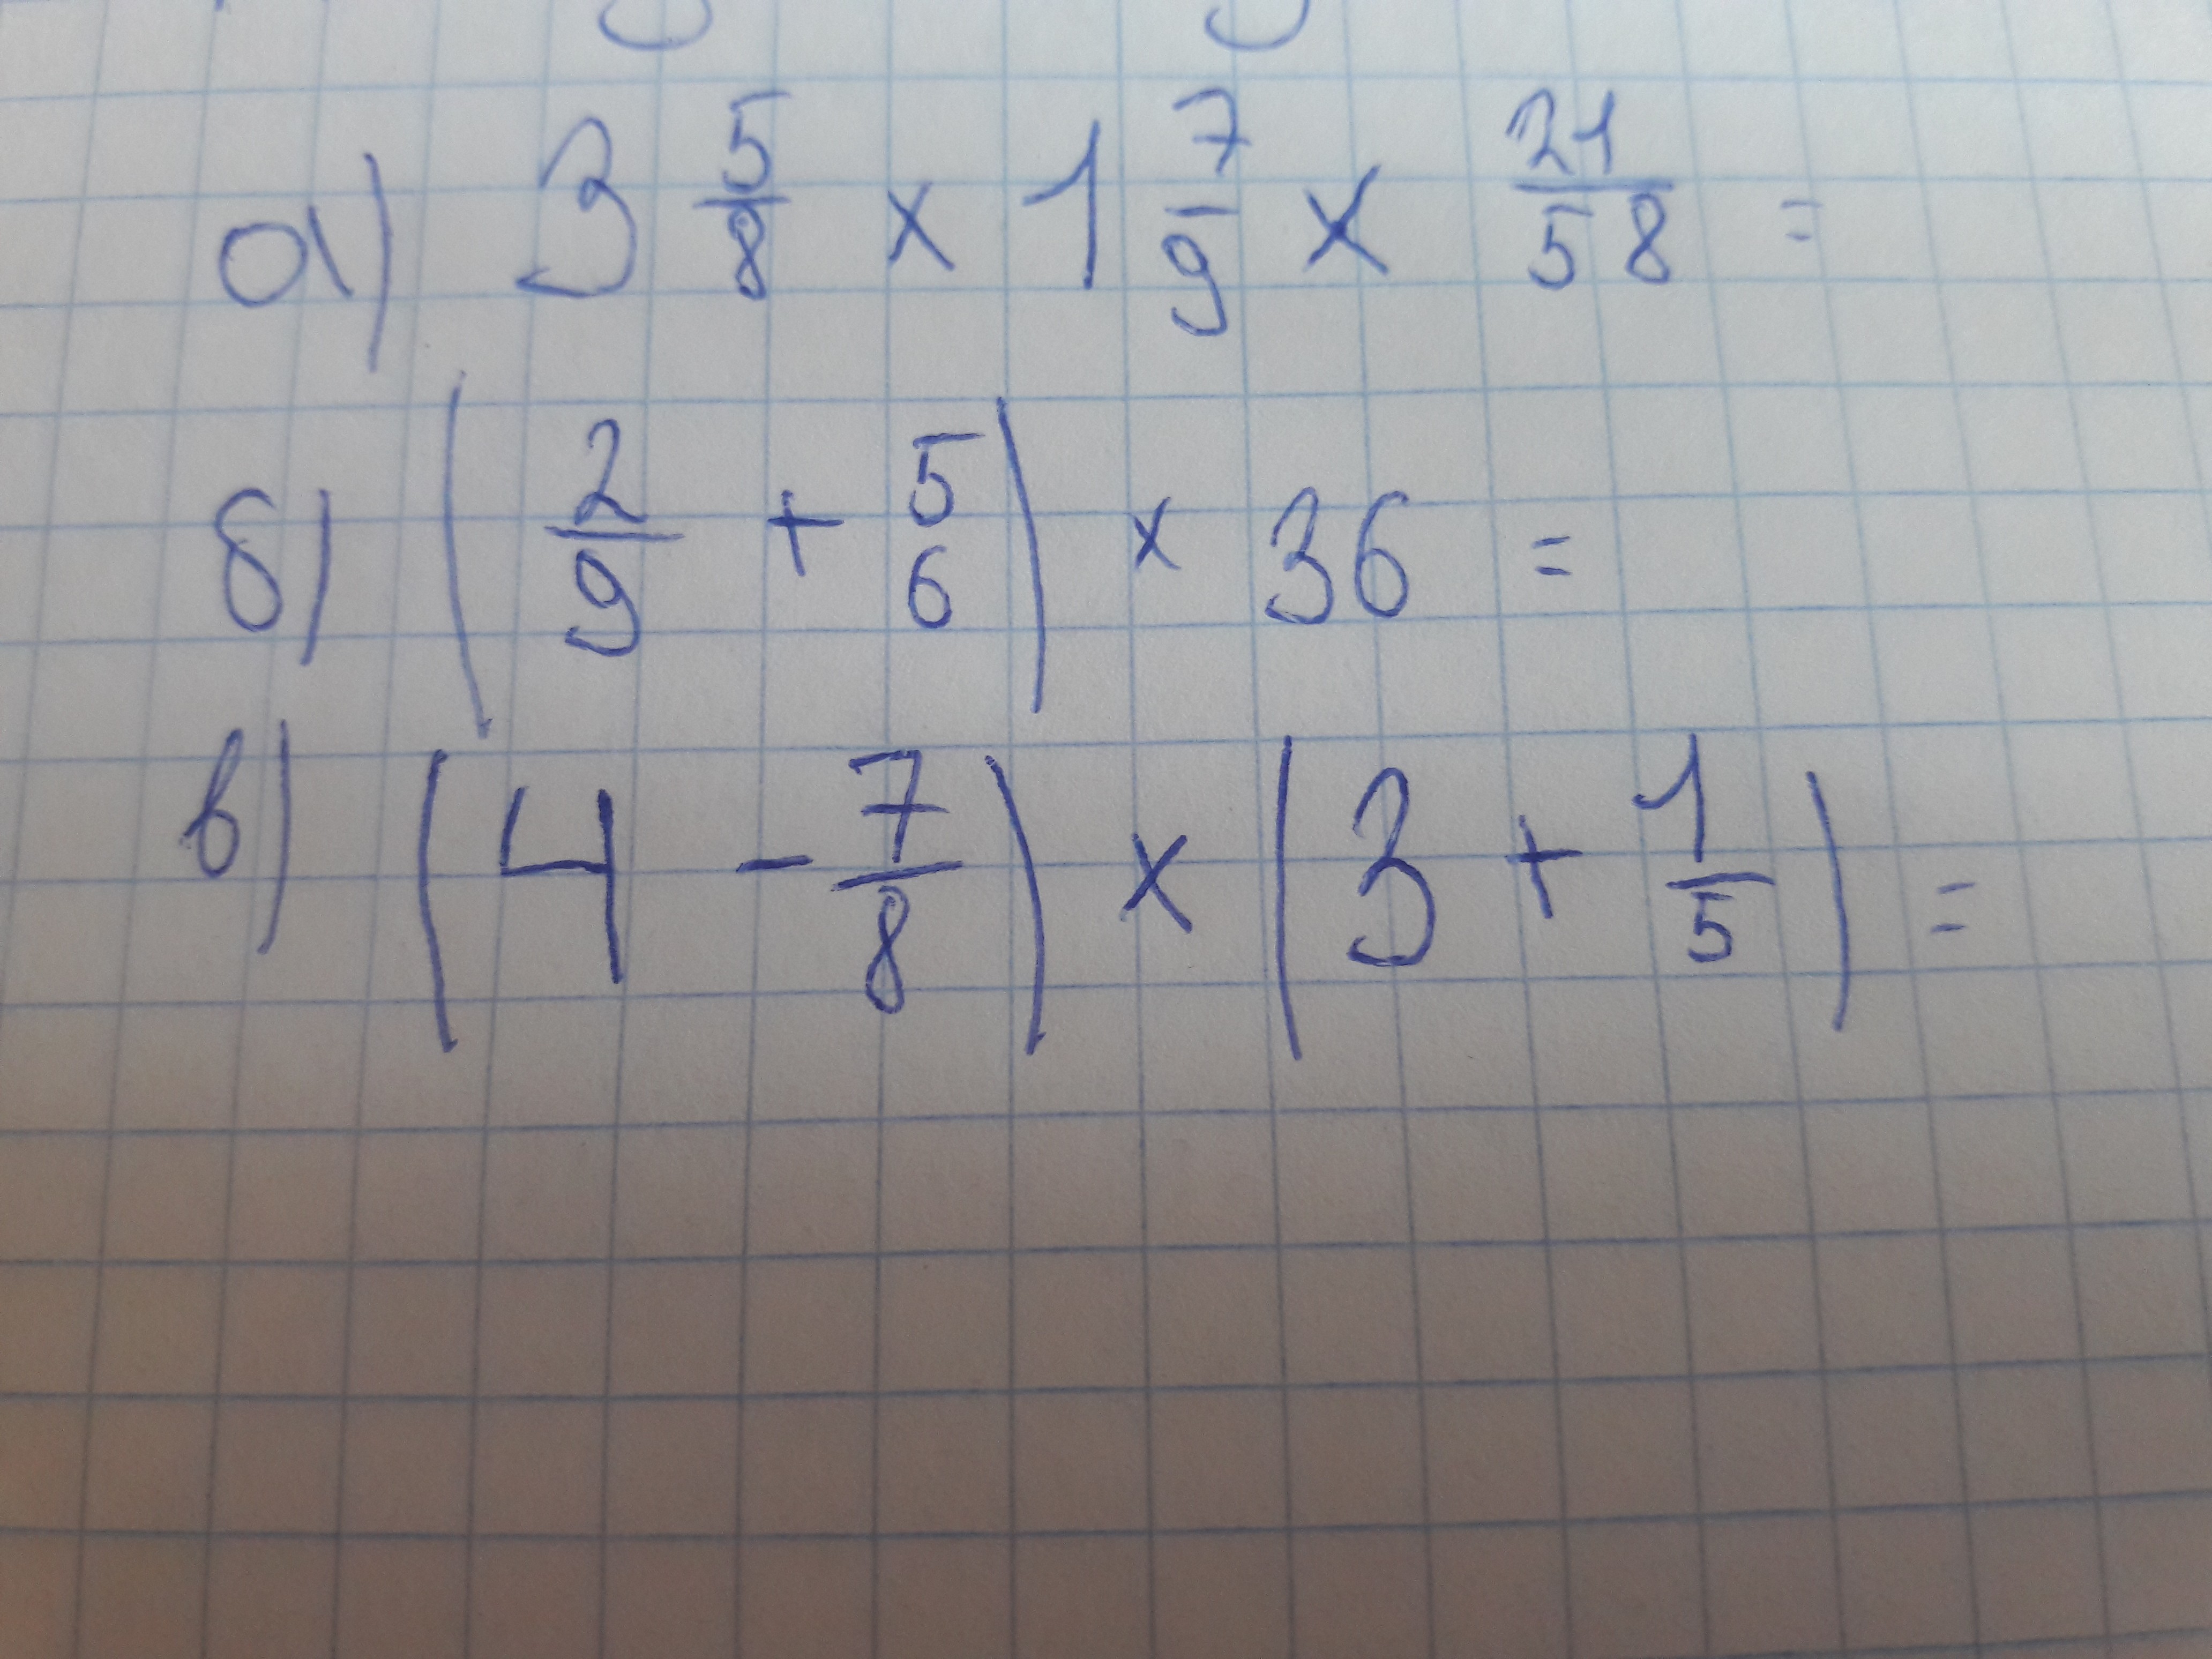 а) 3 5/8 × 1 7/9 × 21/58 =
б) (2/9 + 5/6) × 36 =
в) (4 - 7/8) × (3 + 1/5) =